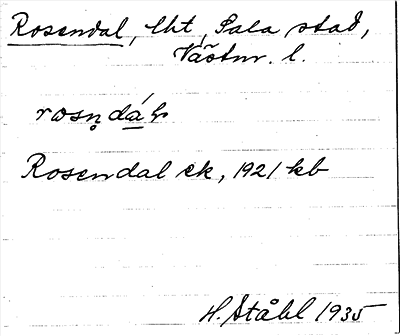 Rosendal, lht, Sala stad,
Västm. l.
Rosendal ek, 1921 kb
H. Ståhl 1935